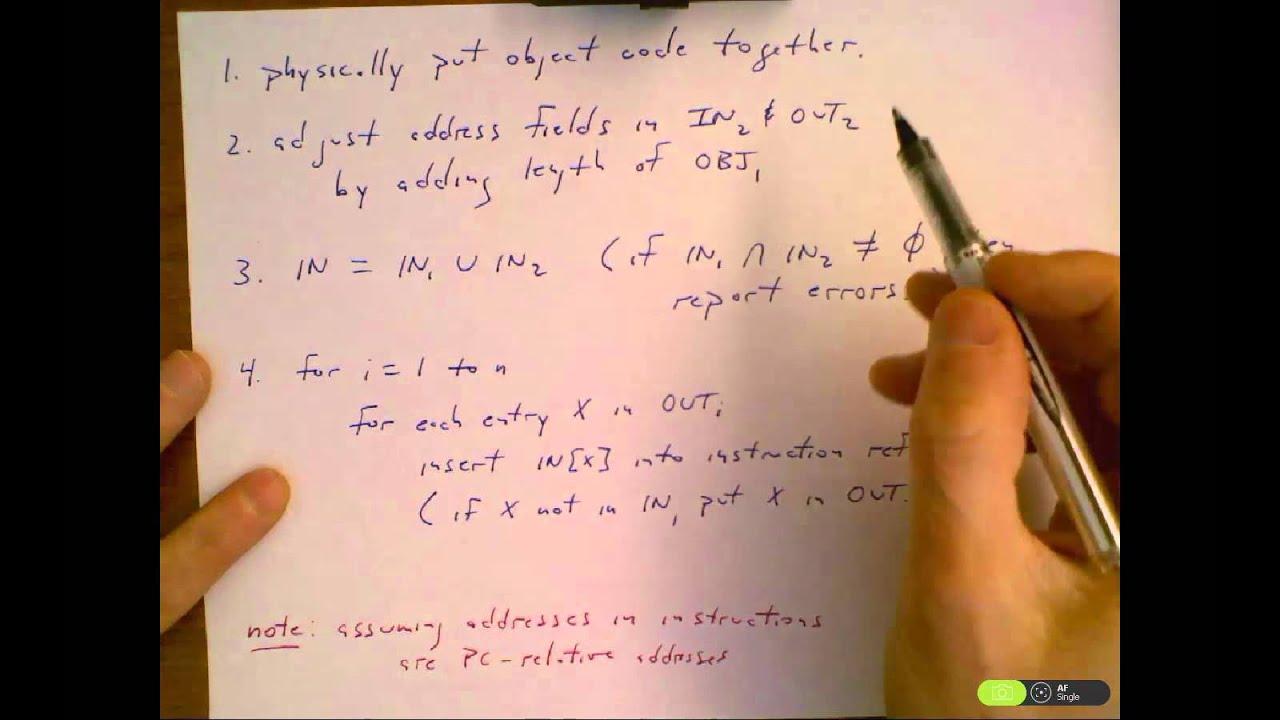 1. physically put object code together.
2. adjust address fields in IN₂ & OUT₂
by adding length of OBJ₁
3. IN = IN₁ ∪ IN₂ (if IN₁ ∩ IN₂ ≠ ∅
report errors
4. for i = 1 to n
for each entry X in OUTᵢ
insert IN[X] into instruction ref
(if X not in IN, put X in OUT.
note: assuming addresses in instructions
are PC-relative addresses
AF
Single